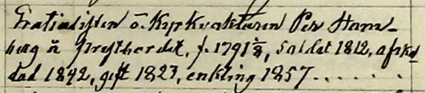 Gratialisten o. Kyrkvaktaren Per Ham-
berg å Prestbordet, f. 1791 2/8, soldat 1812, afske-
dad 1842, gift 1823, enkling 1857......